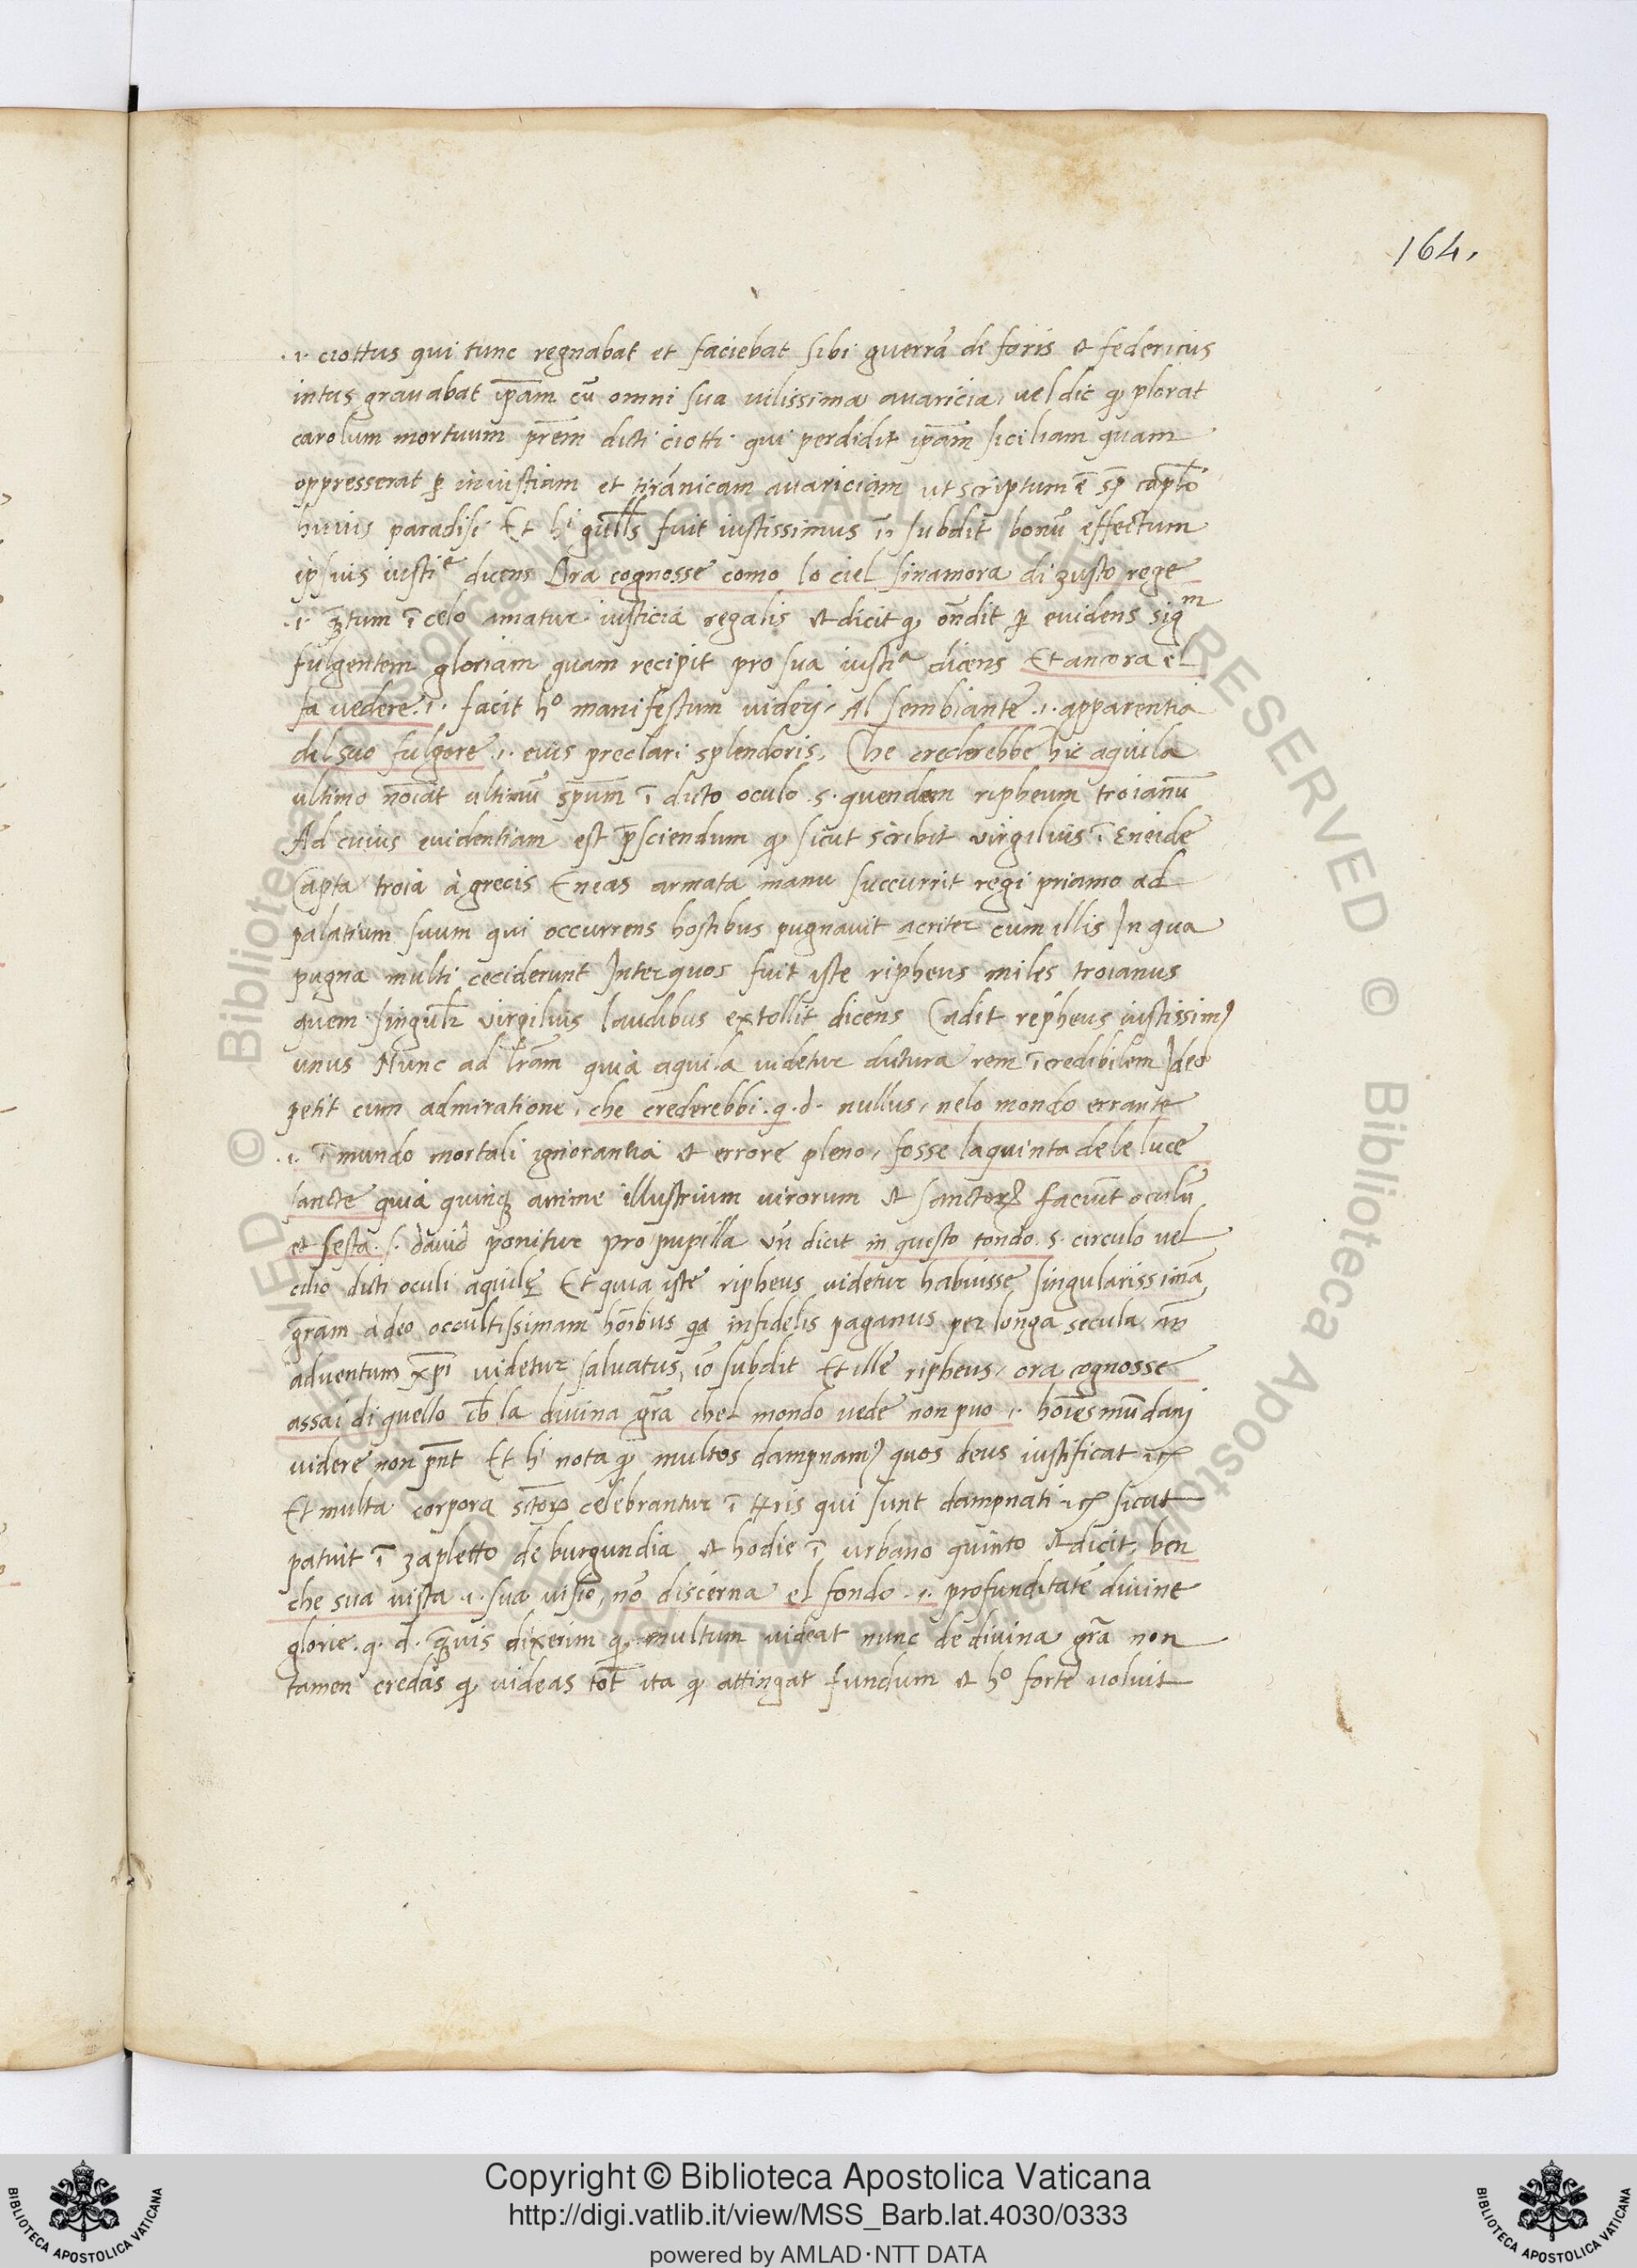 164.
.i. ciottus qui tunc regnabat et faciebat sibi guerrā de foris et federicus
intus grauabat ip̄am cū omni sua uilissima auaricia, uel dic ꝙ plorat
carolum mortuum pr̄em dicti ciotti qui perdidit ip̄am siciliam quam
oppresserat ꝑ iniustiam et tirānicam auariciam ut scriptum ē sꝑ cap̄lo
huius paradisi Et hⁱ guill̄s fuit iustissimus īō subdit bonū effectum
ipsius iustiᵉ dicens Ora cognosse como lo ciel sinamora di zusto rege
.i. ꝗ̄tum ī celo amatur iusticia regalis et dicit ꝙ on̄dit ꝑ euidens sigᵐ
fulgentem gloriam quam recipit pro sua iustiᵃ dicens Et ancora el
fa vedere .i. facit hº manifestum viderj, Al sembiante .i. apparentia
del suo fulgore .i. eius preclari splendoris, Che crederebbe hic aquila
ultimo no̅iat ultimū sp̄um ī dicto oculo .s. quendam ripheum troianū
Ad cuius euidentiam est p̄sciendum ꝙ sicut scribit virgilius ī Eneide
Capta troia à grecis Eneas armata manu succurrit regi priamo ad
palatium suum qui occurrens hostibus pugnauit acriter cum illis In qua
pugna multi ceciderunt Inter quos fuit iste ripheus miles troianus
quem singulr̄ virgilius laudibus extollit dicens Cadit repheus iustissimꝰ
unus Nunc ad lr̄am quia aquila videtur dictura rem īcredibilem Ideo
petit cum admiratione, che crederebbi .q.d. nullus, nelo mondo errante
.i. ī mundo mortali ignorantia et errore pleno, fosse la quinta de le luce
sancte quia quinqꝫ anime illustrium virorum et sanctoꝝ faciūt oculū
et sesta .s. dauid ponitur pro pupilla vn̄ dicit in questo tondo .s. circulo uel
cilio dicti oculi aquilę Et quia iste ripheus videtur habuisse singularissimā
gr̄am adeo occultissimam ho̅ibus qa infidelis paganus per longa secula an̄
aduentum xp̄i videtur saluatus, īo subdit Et ille ripheus, ora cognosse
assai di quello cħ la diuina gr̄a chel mondo vede non puo .i. ho̅ies mūdanj
videre non pn̄t Et hⁱ nota ꝙ multos dampnamꝰ quos deus iustificat
Et multa corpora sc̄toꝝ celebrantur ī tr̄ris qui sunt dampnati sicut
patuit ī zapletto de burgundia et hodie ī urbano quinto et dicit, ben
che sua vista .i. sua visio, nō discerna el fondo .i. profunditatē diuine
glorie .q.d. ꝗ̄uis dixerim ꝙ multum videat nunc de diuina gr̄a non
tamen credas ꝙ videas tot̄ ita ꝙ attingat fundum et hº forte voluit
Copyright © Biblioteca Apostolica Vaticana
http://digi.vatlib.it/view/MSS_Barb.lat.4030/0333
powered by AMLAD·NTT DATA
BIBLIOTECA APOSTOLICA VATICANA
BIBLIOTECA APOSTOLICA VATICANA